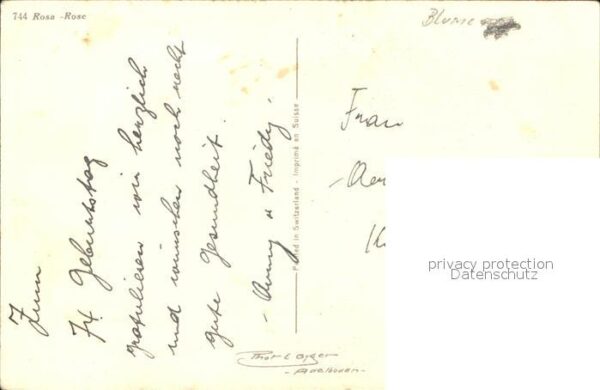 744 Rosa - Rose
Blume
Zum
74 Geburtstag
gratulieren wir herzlich
und wünschen noch recht
gute Gesundheit.
- Anny u Friedy.
Printed in Switzerland - Imprimé en Suisse
Frau
privacy protection
Datenschutz
- Adelboden -